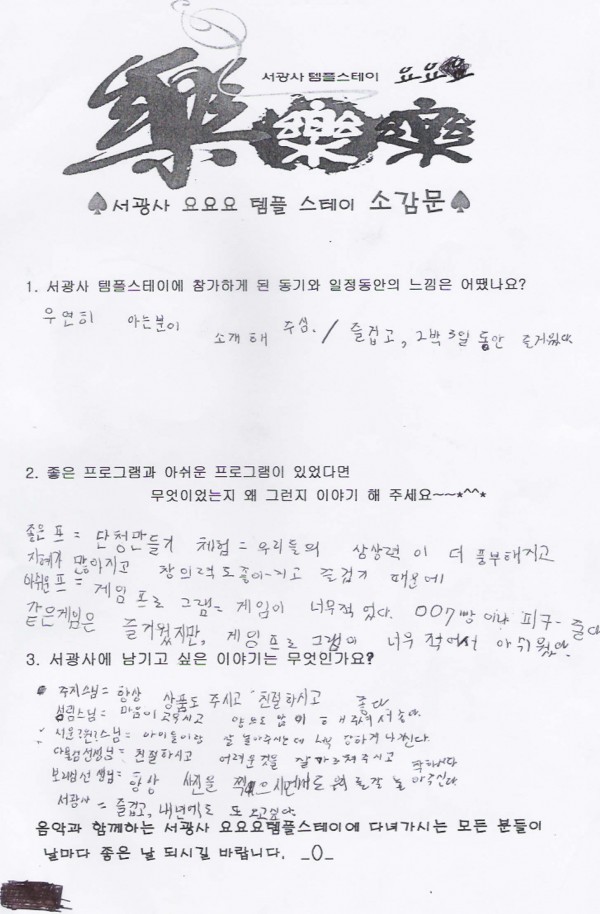 서광사 템플스테이 요요
樂 樂 樂
♠서광사 요요요 템플 스테이 소감문♠
1. 서광사 템플스테이에 참가하게 된 동기와 일정동안의 느낌은 어땠나요?
우연히 아는분이 소개해 주심. / 즐겁고, 2박 3일 동안 즐거웠다.
2. 좋은 프로그램과 아쉬운 프로그램이 있었다면
무엇이었는지 왜 그런지 이야기 해 주세요~~*^^*
좋은 프 = 단청만들기 체험 = 우리들의 상상력이 더 풍부해지고
지혜가 많아지고 창의력도 좋아지고 즐겁기 때문에
아쉬운 프 = 게임 프로그램 = 게임이 너무 적었다. 007빵 이나 피구
같은게임은 즐거웠지만, 게임프로그램이 너무 적어서 아쉬웠다.
3. 서광사에 남기고 싶은 이야기는 무엇인가요?
주지스님 = 항상 상품도 주시고 친절하시고 좋다
스님 = 마음이 고우시고 해 주셔서 좋다.
스님 = 아이들이랑 잘 놀아주시는데
선생님 = 친절하시고 어려운것을 잘 가르쳐주시고 착하시다
= 항상 사진을 찍으시면서도 잘 놀아주신다
서광사 = 즐겁고, 내년에도 또 오고싶다.
음악과 함께하는 서광사 요요요템플스테이에 다녀가시는 모든 분들이
날마다 좋은 날 되시길 바랍니다. _()_